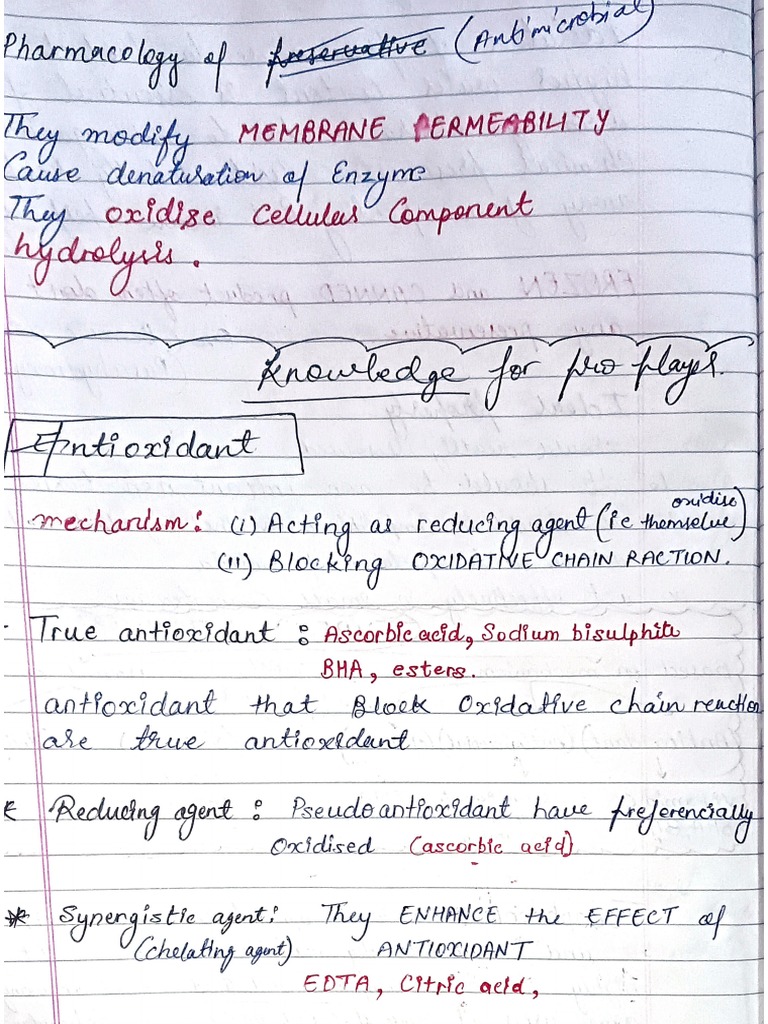 Pharmacology of preservative (Antimicrobial)
They modify MEMBRANE PERMEABILITY
Cause denaturation of Enzyme
They oxidise Cellular Component
hydrolysis.
Knowledge for pro player.
Antioxidant
mechanism: (i) Acting as reducing agent (ie themselve oxidise)
(ii) Blocking OXIDATIVE CHAIN RACTION.
True antioxidant : Ascorbic acid, Sodium bisulphite
BHA, esters.
antioxidant that Block Oxidative chain reaction
are true antioxidant
Reducing agent : Pseudoantioxidant have preferencially
Oxidised (ascorbic acid)
* Synergistic agent: They ENHANCE the EFFECT of
(chelating agent) ANTIOXIDANT
EDTA, Citric acid,